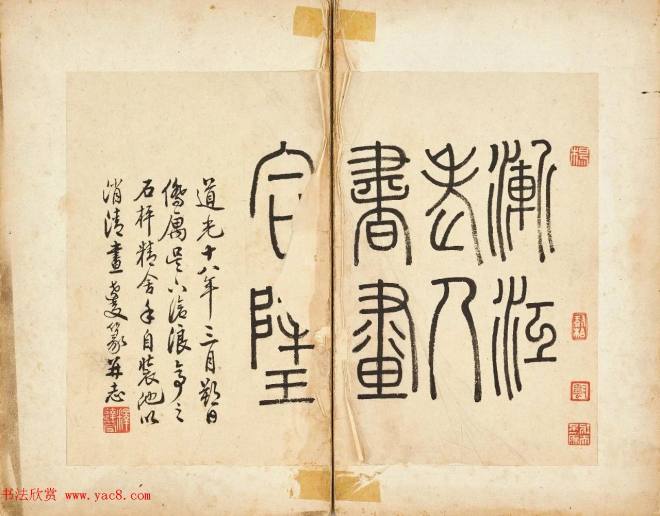 漸江
老人
書畫
道光十八年三月朔日
僑寓吳下滄浪亭之
石枰精舍手自裝池以
消清晝達受篆并志
书法欣赏 www.yac8.com